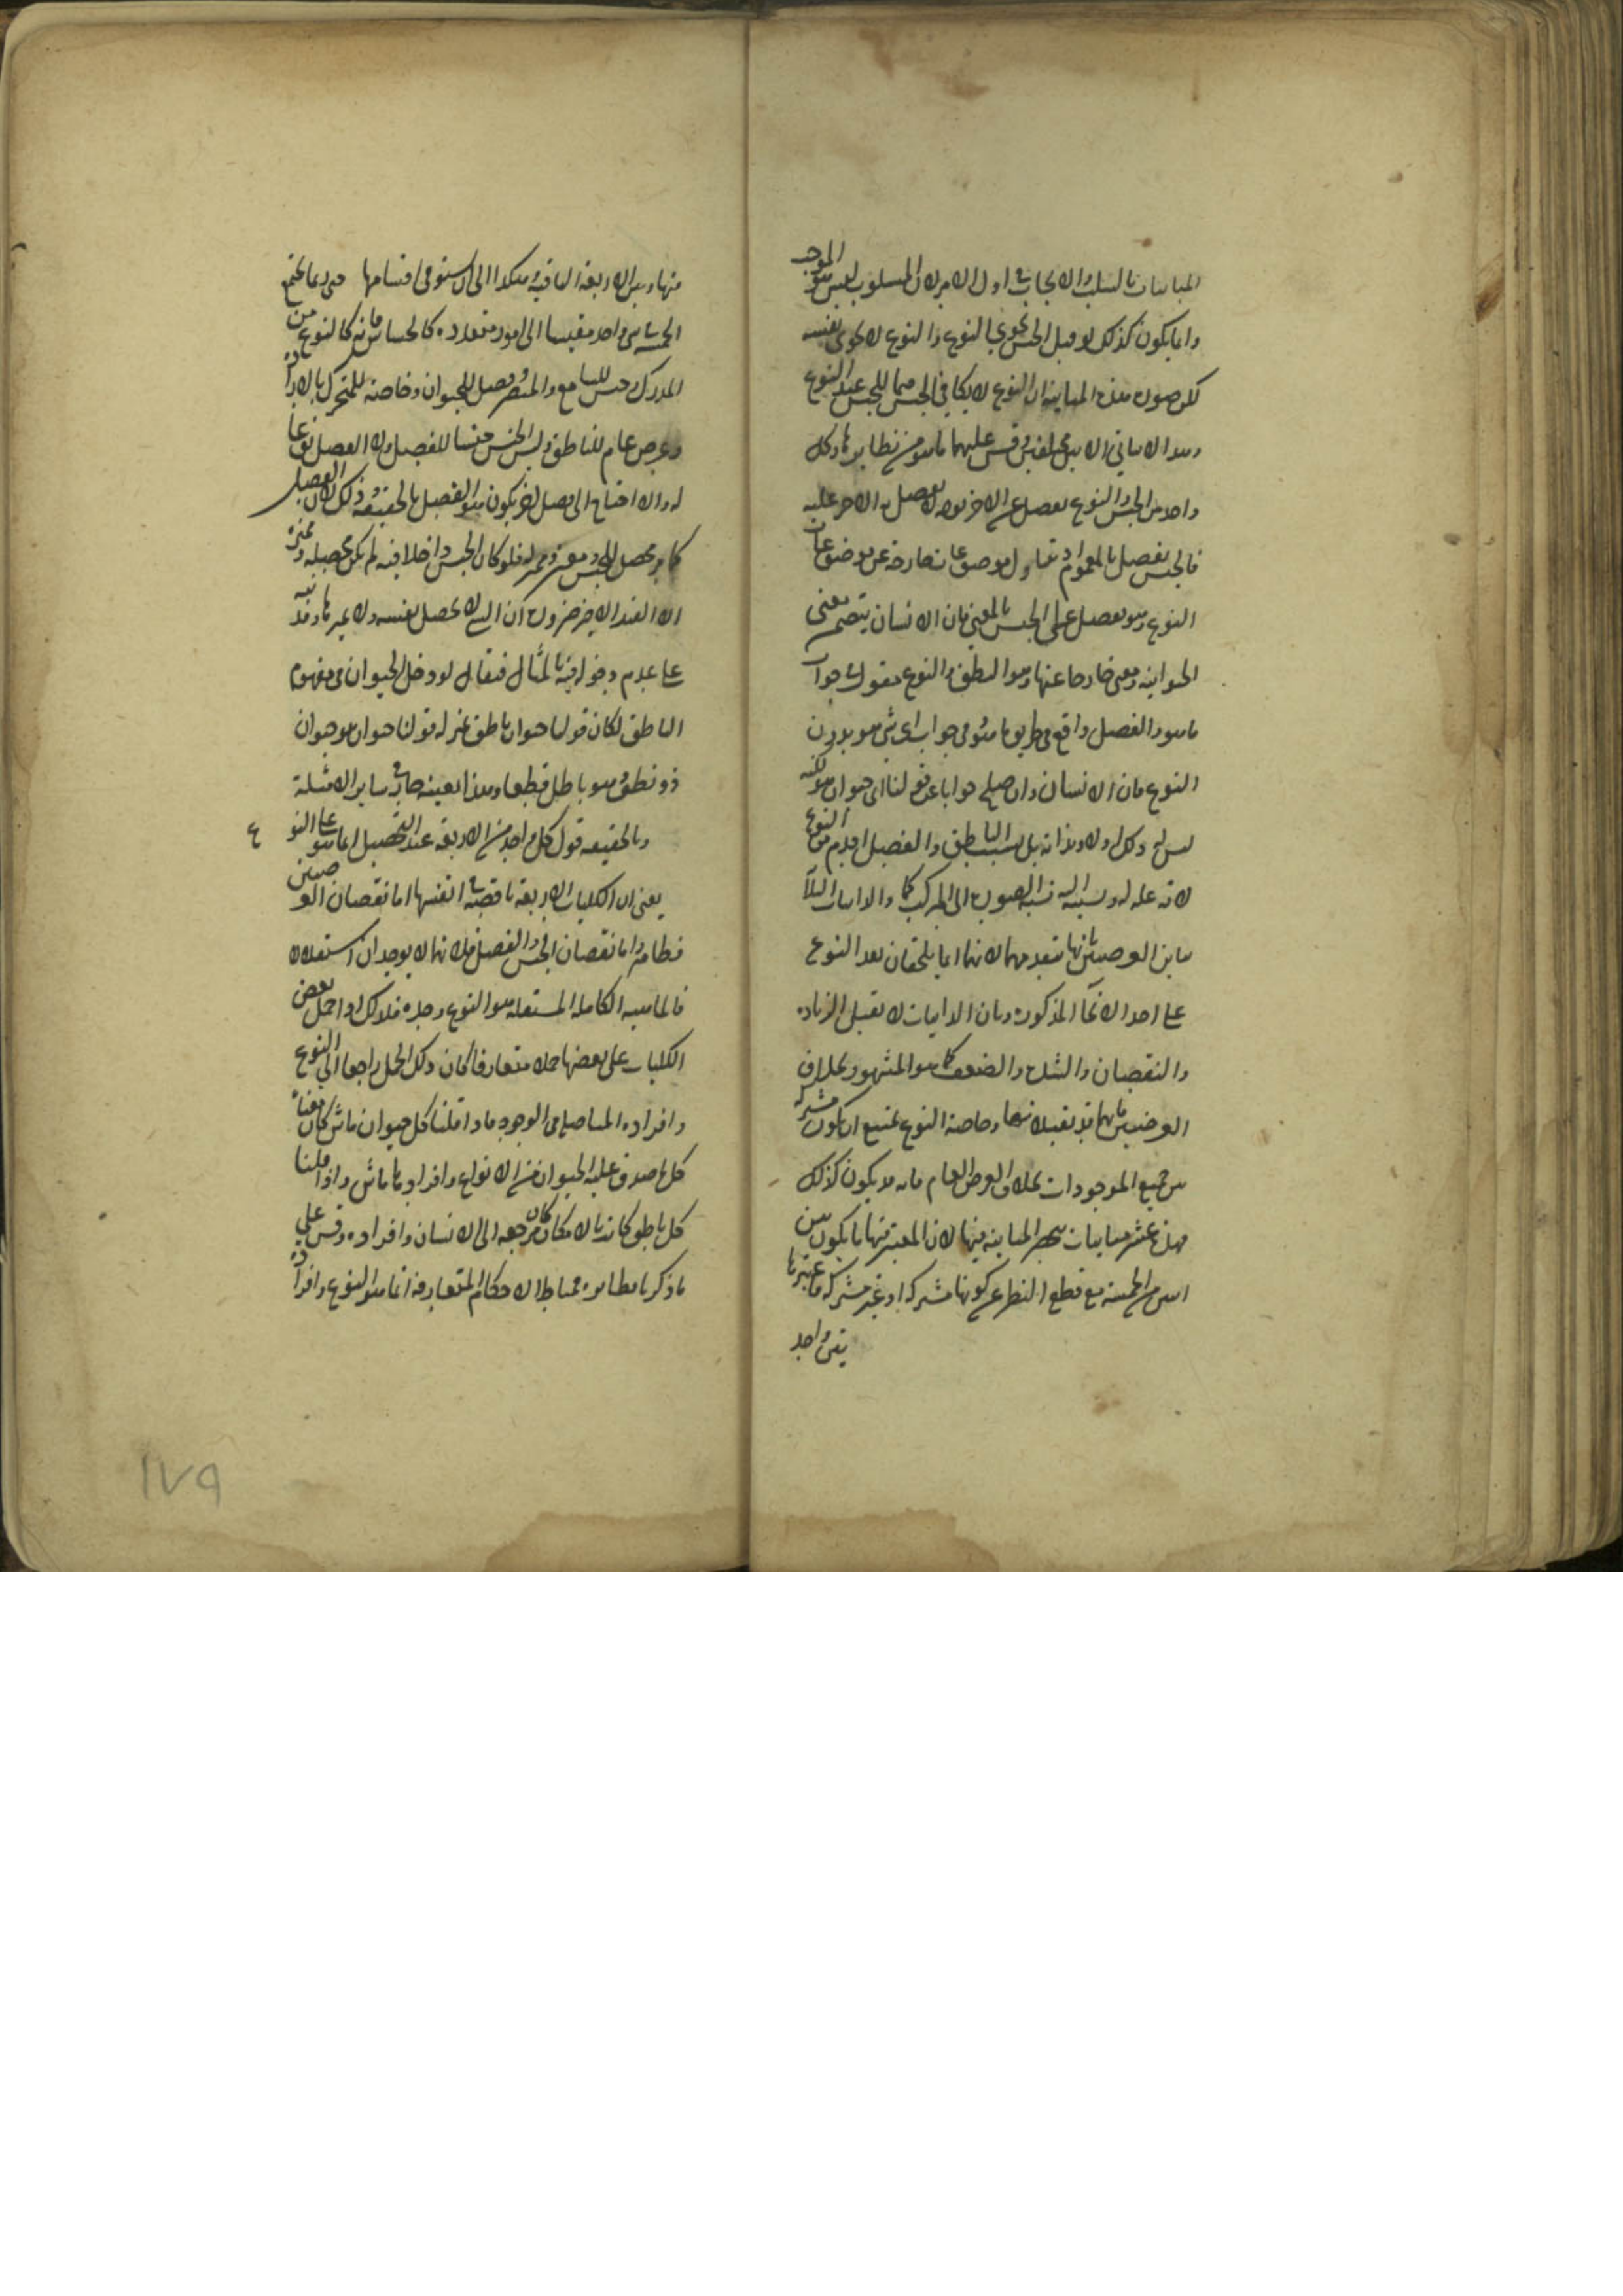 المباينات بالسلب والايجاب في اول الامر لان المسلوب ليس هو الموجب
وانما يكون كذلك لو قيل الجنس يحوي النوع والنوع لا يحوي نفسه
لكن صورة هذه المباينة ان النوع لا يكافي الجنس عند النوع
وهذا الا بين مختلفين وقس عليهما ما هو من نظايرها وكل
واحد من الجنس والنوع يفصل عن الاخر بوجه لا يفصل به الاخر عليه
فالجنس يفصل بالعموم اذ يتناول موضوعات خارجة عن موضوعات
النوع وهو يفصل على الجنس بالمعنى فان الانسان يتضمن معنى
الحيوانية ومعنى خارجا عنها وهو النطق والنوع مقول في جواب
ما هو والفصل واقع في طريق ما هو في جواب اي شي هو بدون
النوع فان الانسان وان صلح جوابا عن قولنا اي حيوان هو لكنه
ليس ذلك اولا وبذاته بل بسبب الناطق والفصل اقدم من النوع
لانه علة له ونسبته اليه نسبة الصورة الى المركب كما والذاتيات الثلاث
تباين العرضيين بانها تتقدمهما لانهما انما يلحقان بعد النوع
على احد الانحا المذكورة وبان الذاتيات لا تقبل الزيادة
والنقصان والشدة والضعف كما هو المشهور بخلاف
العرضيين فانهما قد تقبلانها وخاصة النوع يمتنع ان يكون مشتركة
بين جميع الموجودات بخلاف العرض العام فانه قد يكون كذلك
فهذه عشر مباينات المباينة فيها لان المعتبر فيها ما يكون بين
اثنين من الخمسة مع قطع النظر عن كونها مشتركة او غير مشتركة
بين واحد
منها وبين الاربعة الباقية وهكذا الى ان يستوفى اقسامها حتى ربما يجتمع
الخمسة في شي واحد مقيسا الى امور متعددة كالحساس فانه كالنوع من
المدرك وجنس للسامع والمبصر وفصل للحيوان وخاصة للمتحرك بالارادة
وعرض عام للناطق وليس الجنس جنسا للفصل ولا الفصل نوعا
له والا احتاج الى فصل اخر يكون هو الفصل بالحقيقة وذلك لان الفصل
كما مر محصل للجنس ومميز له فلو كان الجنس داخلا فيه لم يكن محصله ومميزه
الا القدر الاخير ضرورة ان الشي لا يحصل نفسه ولا يميزها وقد نبه
على عدم دخوله فيه بالمثال فيقال لو دخل الحيوان في مفهوم
الناطق لكان قولنا حيوان ناطق بمنزلة قولنا حيوان هو حيوان
ذو نطق وهو باطل قطعا وهذا بعينه جار في ساير الامثلة
وبالحقيقة قول كل واحد من الاربعة عند التحصيل انما هو على النوع
يعني ان الكليات الاربعة ناقصة في انفسها اما نقصان العرضيين
فظاهر واما نقصان الجنس والفصل فلانهما لا يوجدان استقلالا
فالماهية الكاملة المستقلة هو النوع وحده فلذلك اذا حمل بعض
الكليات على بعضها حملا متعارفا كان ذلك الحمل راجعا الى النوع
وافراده المتاصلة في الوجود فاذا قلنا كل حيوان ماش كان معناه
كل ما صدق عليه الحيوان من الانواع وافرادها ماش واذا قلنا
كل ناطق كاتب بالامكان كان مرجعه الى الانسان وافراده وقس على
ما ذكرنا نظايره فمناط الاحكام المتعارفة انما هو النوع وافراده
١٧٩